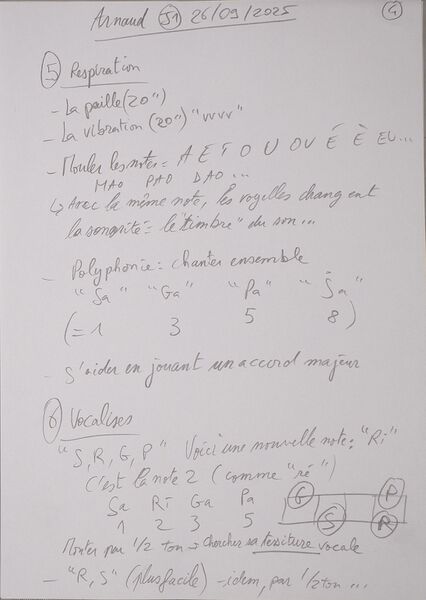 Arnaud S1 26/09/2025 4
5 Respiration
- La paille (20")
- La vibration (20") "vvvv"
- Mouler les notes = A E I O U OU É È EU...
MAO PAO DAO...
↳ Avec la même note, les voyelles changent
la sonorité = le "timbre" du son...
- Polyphonie = chanter ensemble
"Sa" "Ga" "Pa" "Ṡa"
(= 1 3 5 8)
- S'aider en jouant un accord majeur
6 Vocalises
"S, R, G, P" Voici une nouvelle note: "Ri"
C'est la note 2 (comme "ré")
Sa Ri Ga Pa
1 2 3 5
G P
S R
Monter par 1/2 ton → Chercher sa tessiture vocale
- "R, S" (plus facile) - idem, par 1/2 ton...